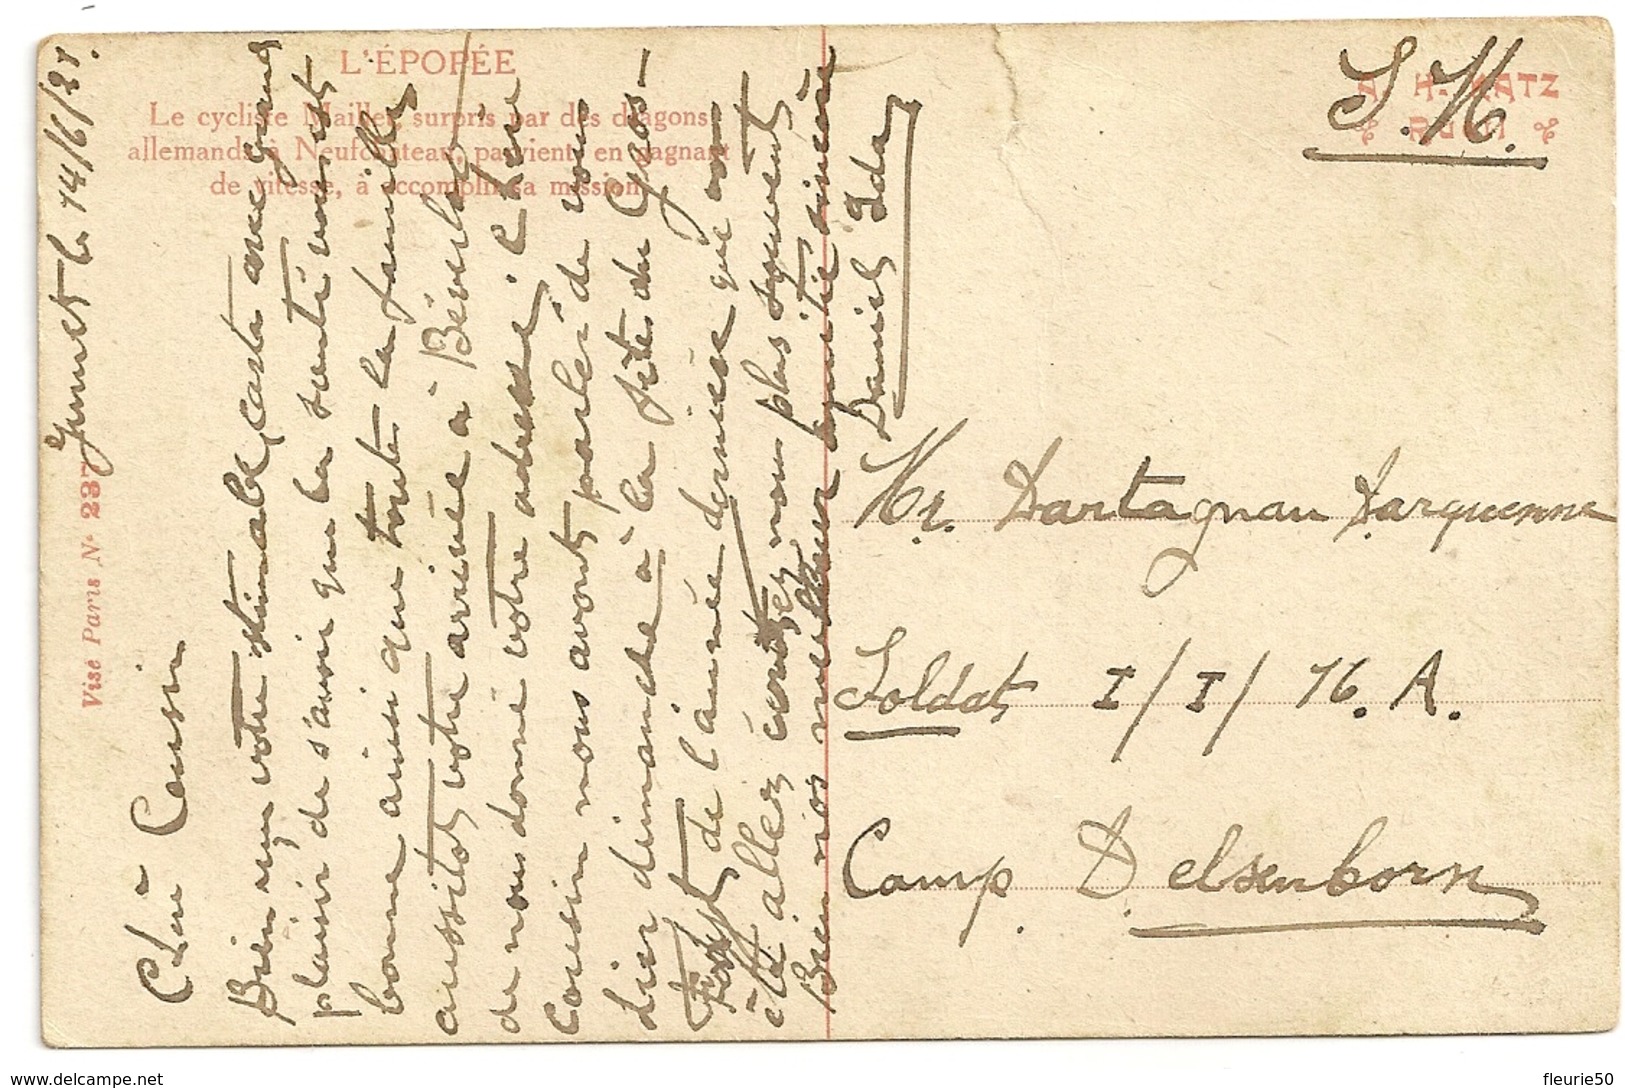 L'ÉPOPÉE
Le cycliste Maillet, surpris par des dragons
allemands à Neufchateau, parvient, en gagnant
de vitesse, à accomplir sa mission
Visé Paris No 237
S. M.
A. H. KATZ
Jumet le 14/6/21.
Chèr Cousin
Bien reçu votre éstimable carte avec grand
plaisir de s'avoir que la santé vous est
bonne ainsi que toute la famille
aussitot votre arrivée à Béverloo
de nous donné votre adresse. Cher
Cousin nous avont parlé de vous
hier dimanche à la fête du Gros-
Fayt de l'année dernière que vous
étè allez écrivez nous plus souvent
Bien nos meilleur amitié sincère
Daniel Ida
Mr. Dartagnan Darquenne
Soldat I/I/16. A.
Camp. D. elsenborn
delcampe.net
fleurie50